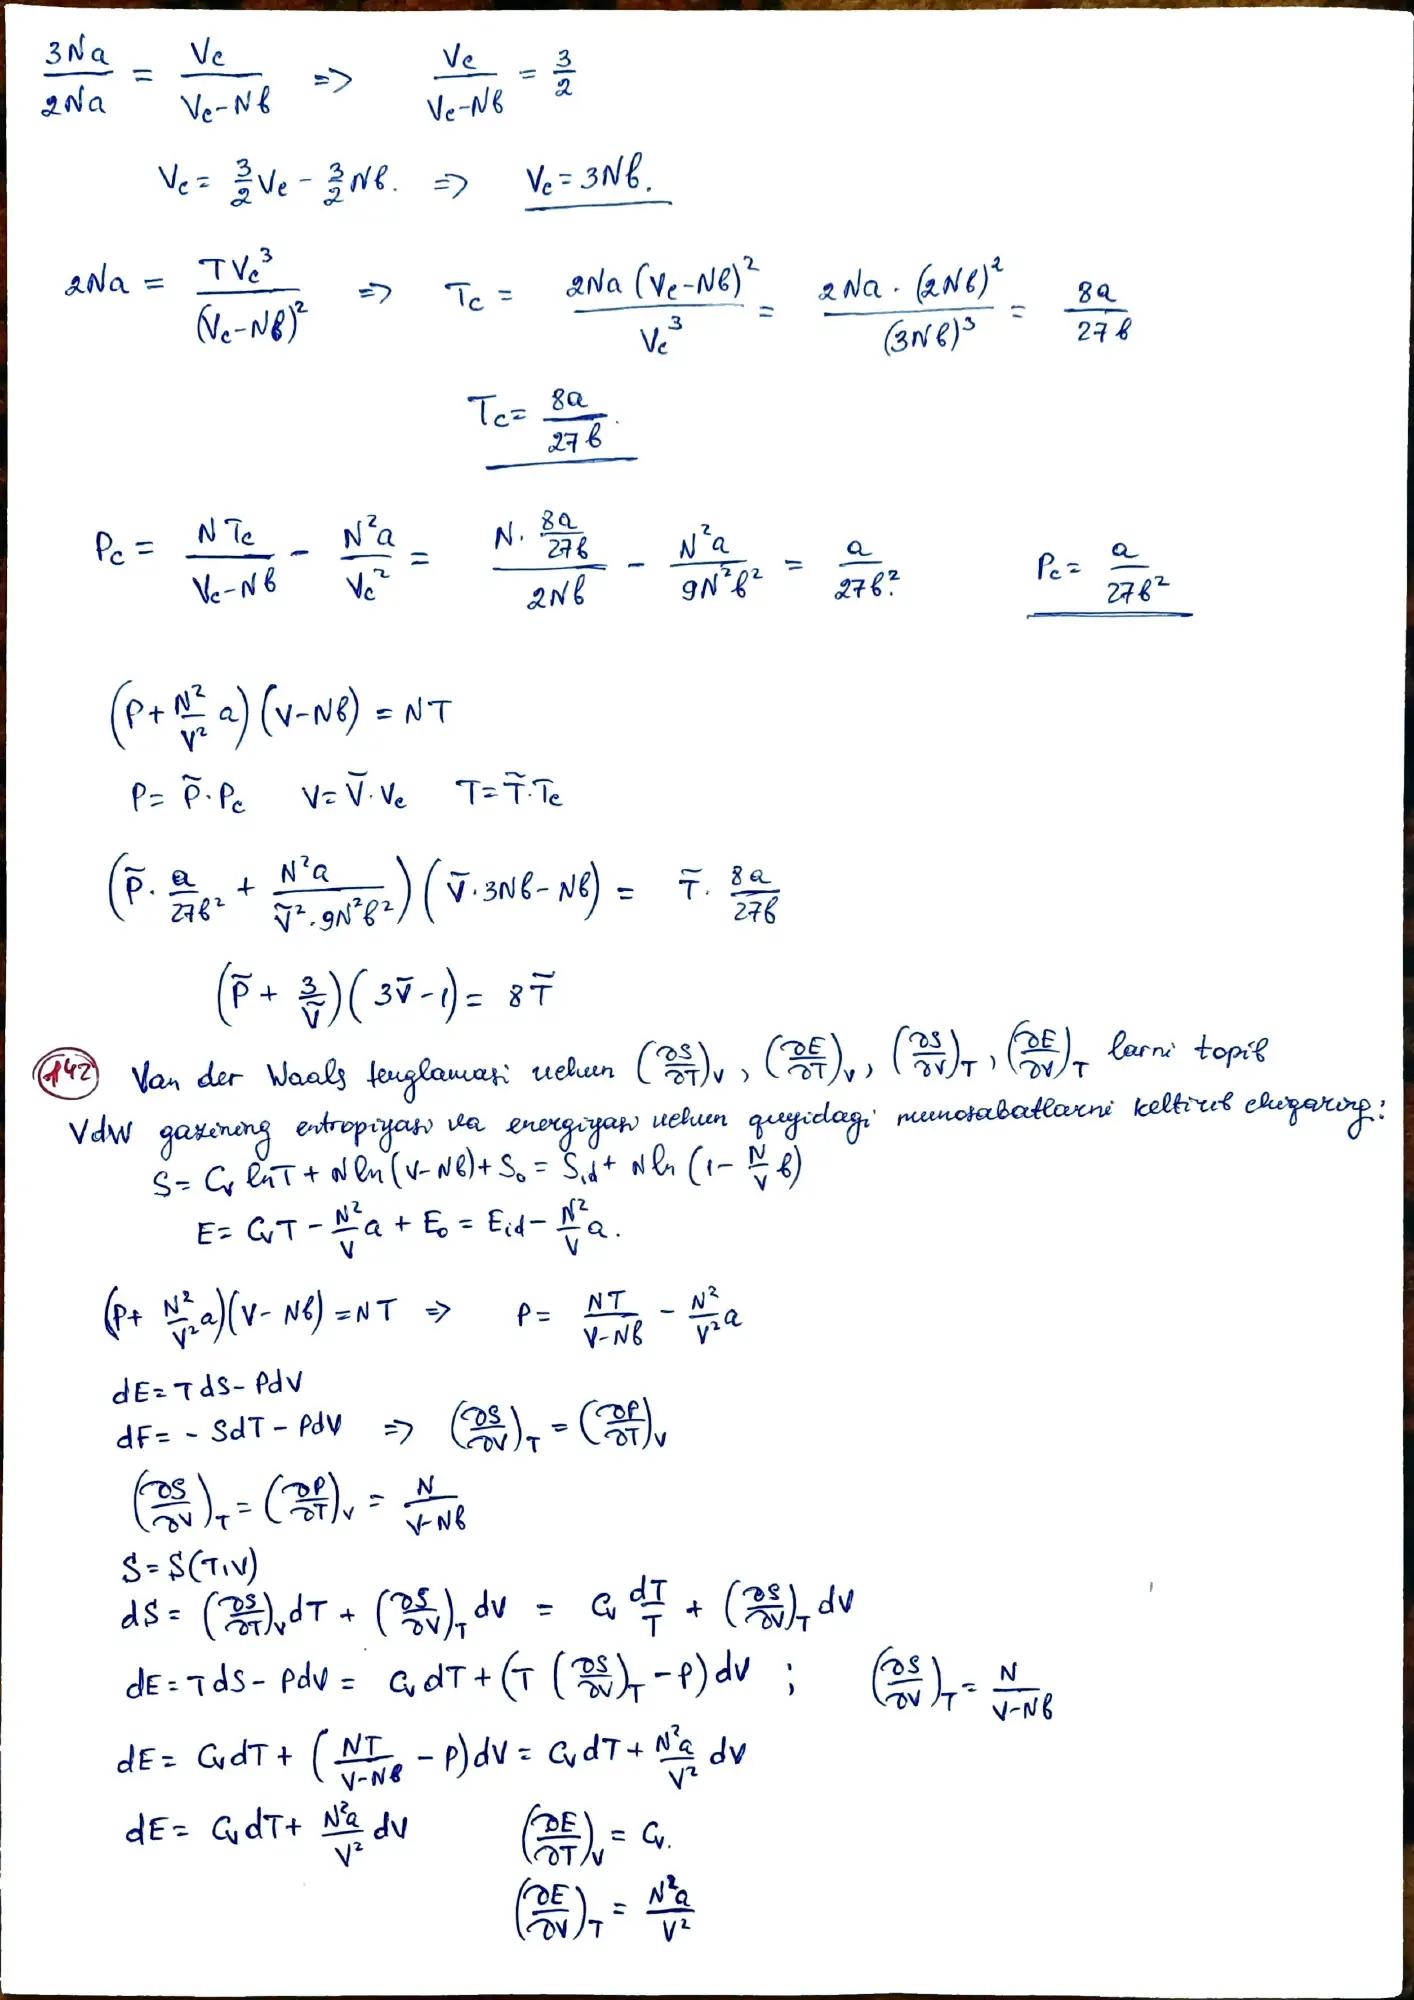 3Na/2Na = Vc/(Vc-Nв) => Vc/(Vc-Nв) = 3/2
Vc = 3/2 Vc - 3/2 Nв. => Vc = 3Nв.
2Na = TVc³/(Vc-Nв)² => Tc = 2Na(Vc-Nв)²/Vc³ = 2Na·(2Nв)²/(3Nв)³ = 8a/27в
Tc = 8a/27в.
Pc = NTc/(Vc-Nв) - N²a/Vc² = (N·8a/27в)/2Nв - N²a/9N²в² = a/27в². Pc = a/27в²
(P + N²/V² a)(V-Nв) = NT
P = P̃·Pc V = Ṽ·Vc T = T̃·Tc
(P̃·a/27в² + N²a/(Ṽ²·9N²в²))(Ṽ·3Nв-Nв) = T̃·8a/27в
(P̃ + 3/Ṽ)(3Ṽ-1) = 8T̃
142 Van der Waals tenglamasi uchun (∂S/∂T)V, (∂E/∂T)V, (∂S/∂V)T, (∂E/∂V)T larni topib
VdW gazining entropiyasi va energiyasi uchun quyidagi munosabatlarni keltirib chiqaring:
S = Cv lnT + N ln(V-Nв) + S₀ = Sid + N ln(1 - N/V в)
E = CvT - N²/V a + E₀ = Eid - N²/V a.
(P + N²/V² a)(V-Nв) = NT => P = NT/(V-Nв) - N²/V² a
dE = TdS - PdV
dF = - SdT - PdV => (∂S/∂V)T = (∂P/∂T)V
(∂S/∂V)T = (∂P/∂T)V = N/(V-Nв)
S = S(T,V)
dS = (∂S/∂T)V dT + (∂S/∂V)T dV = Cv dT/T + (∂S/∂V)T dV
dE = TdS - PdV = Cv dT + (T(∂S/∂V)T - P)dV ; (∂S/∂V)T = N/(V-Nв)
dE = Cv dT + (NT/(V-Nв) - P)dV = Cv dT + N²a/V² dV
dE = Cv dT + N²a/V² dV (∂E/∂T)V = Cv.
(∂E/∂V)T = N²a/V²